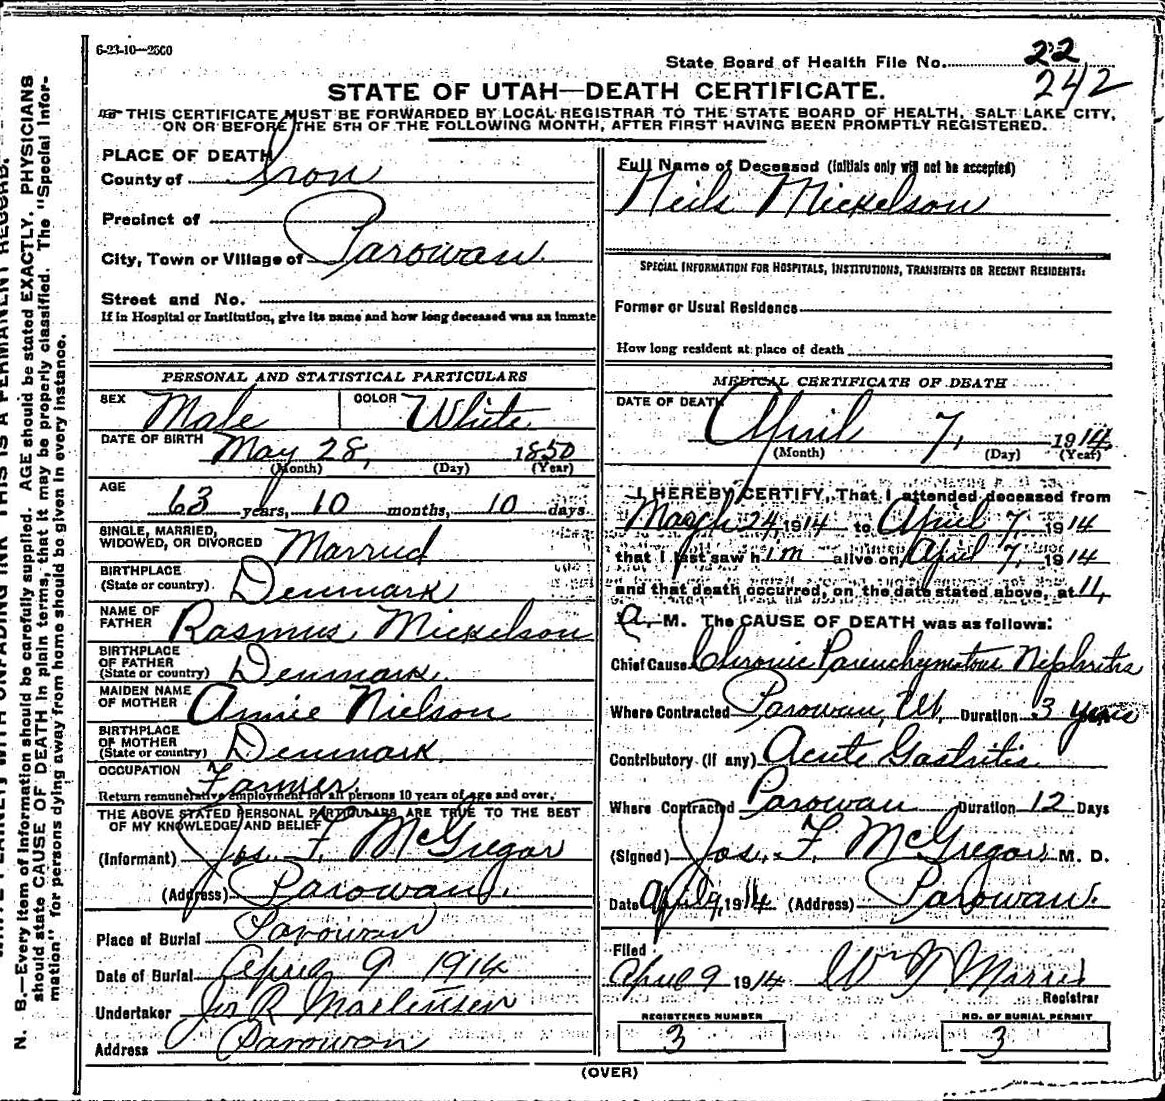 6-23-10—2500
State Board of Health File No. 22
242
STATE OF UTAH—DEATH CERTIFICATE.
☞ THIS CERTIFICATE MUST BE FORWARDED BY LOCAL REGISTRAR TO THE STATE BOARD OF HEALTH, SALT LAKE CITY,
ON OR BEFORE THE 5TH OF THE FOLLOWING MONTH, AFTER FIRST HAVING BEEN PROMPTLY REGISTERED.
PLACE OF DEATH
County of Iron
Precinct of
City, Town or Village of Parowan
Street and No.
If in Hospital or Institution, give its name and how long deceased was an inmate
PERSONAL AND STATISTICAL PARTICULARS
SEX Male COLOR White
DATE OF BIRTH May 28, 1850
(Month) (Day) (Year)
AGE 63 years, 10 months, 10 days.
SINGLE, MARRIED,
WIDOWED, OR DIVORCED Married
BIRTHPLACE
(State or country) Denmark
NAME OF
FATHER Rasmus Mickelson
BIRTHPLACE
OF FATHER
(State or country) Denmark.
MAIDEN NAME
OF MOTHER Annie Nielson
BIRTHPLACE
OF MOTHER
(State or country) Denmark.
OCCUPATION Farmer
Return remunerative employment for all persons 10 years of age and over.
THE ABOVE STATED PERSONAL PARTICULARS ARE TRUE TO THE BEST
OF MY KNOWLEDGE AND BELIEF
(Informant) Jos. F. McGregor
(Address) Parowan.
Place of Burial Parowan
Date of Burial April 9 1914
Undertaker R
Address Parowan
Full Name of Deceased (initials only will not be accepted)
Neils Mickelson
SPECIAL INFORMATION FOR HOSPITALS, INSTITUTIONS, TRANSIENTS OR RECENT RESIDENTS:
Former or Usual Residence
How long resident at place of death
MEDICAL CERTIFICATE OF DEATH
DATE OF DEATH
April 7, 1914
(Month) (Day) (Year)
I HEREBY CERTIFY, That I attended deceased from
March 24, 1914 to April 7, 1914
that I last saw him alive on April 7, 1914
and that death occurred, on the date stated above, at 11,
A. M. The CAUSE OF DEATH was as follows:
Chief Cause Chronic Parenchymatous Nephritis
Where Contracted Parowan, Ut, Duration 3 years
Contributory (if any) Acute Gastritis
Where Contracted Parowan Duration 12 Days
(Signed) Jos. F. McGregor M. D.
Date April 9, 1914 (Address) Parowan.
Filed
April 9 1914 Wm
Registrar
REGISTERED NUMBER
3
NO. OF BURIAL PERMIT
3
(OVER)
N. B.—Every item of information should be carefully supplied. AGE should be stated EXACTLY. PHYSICIANS
should state CAUSE OF DEATH in plain terms, that it may be properly classified. The "Special Infor-
mation" for persons dying away from home should be given in every instance.